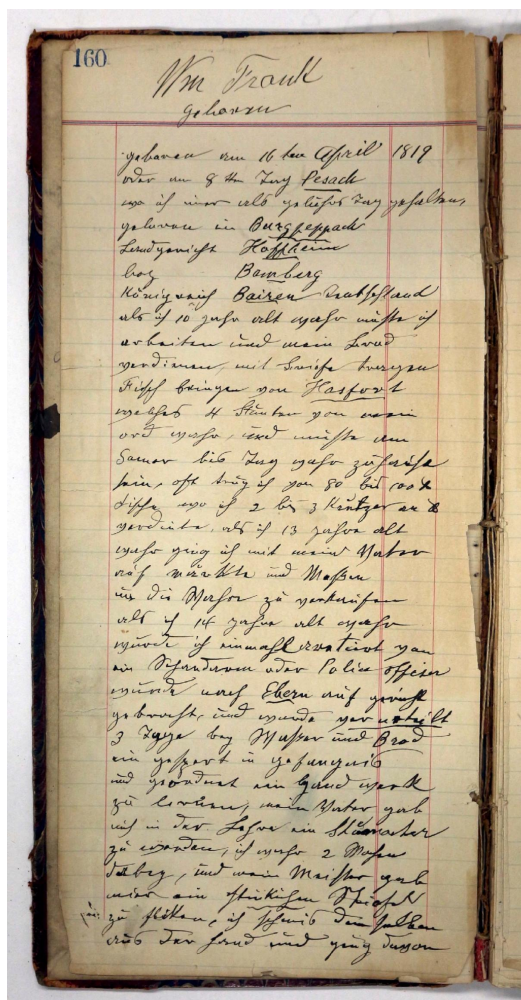 160
Wm Frank
geboren
geboren am 16ten April 1819
oder am 8ten Tag Pesach
wo ich imer als Tag gehalten
geboren in Burgpeppach
Landgericht Hoffheim
bey Bamberg
Königreich Bairen Deutschland
als ich 10 Jahr alt wahr muste ich
arbeiten und mein Brod
verdienen, mit Briefe tragen
Fisch bringen von Hasfort
welches 4 Stunten von mein
ord wahr, und muste am
Samer bis Tag wahr zuhause
sein, oft trug ich von 80 bis 100 ℔
Fische wo ich 2 bis 3 Kreutzer an ℔
verdinte, als ich 13 Jahre alt
wahr ging ich mit mein Vater
auf märkte und Meßen
um die Wahre zu verkaufen
als ich 14 Jahre alt wahr
wurde ich einmahl aretiert von
ein Schandarm oder Police officer
wurde nach Ebern auf gericht
gebracht, und wurde verurteilt
3 Tage bey Waßer und Brod
ein gespert in gefangnis
und geordnet ein Handwerk
zu lernen, mein Vater gab
mich in der Lehre ein
zu werden, ich wahr 2 Wochen
dabey, und mein Meister gab
mier ein Stiefel
zu fliken, ich schmis denselben
aus der Hand und ging davon